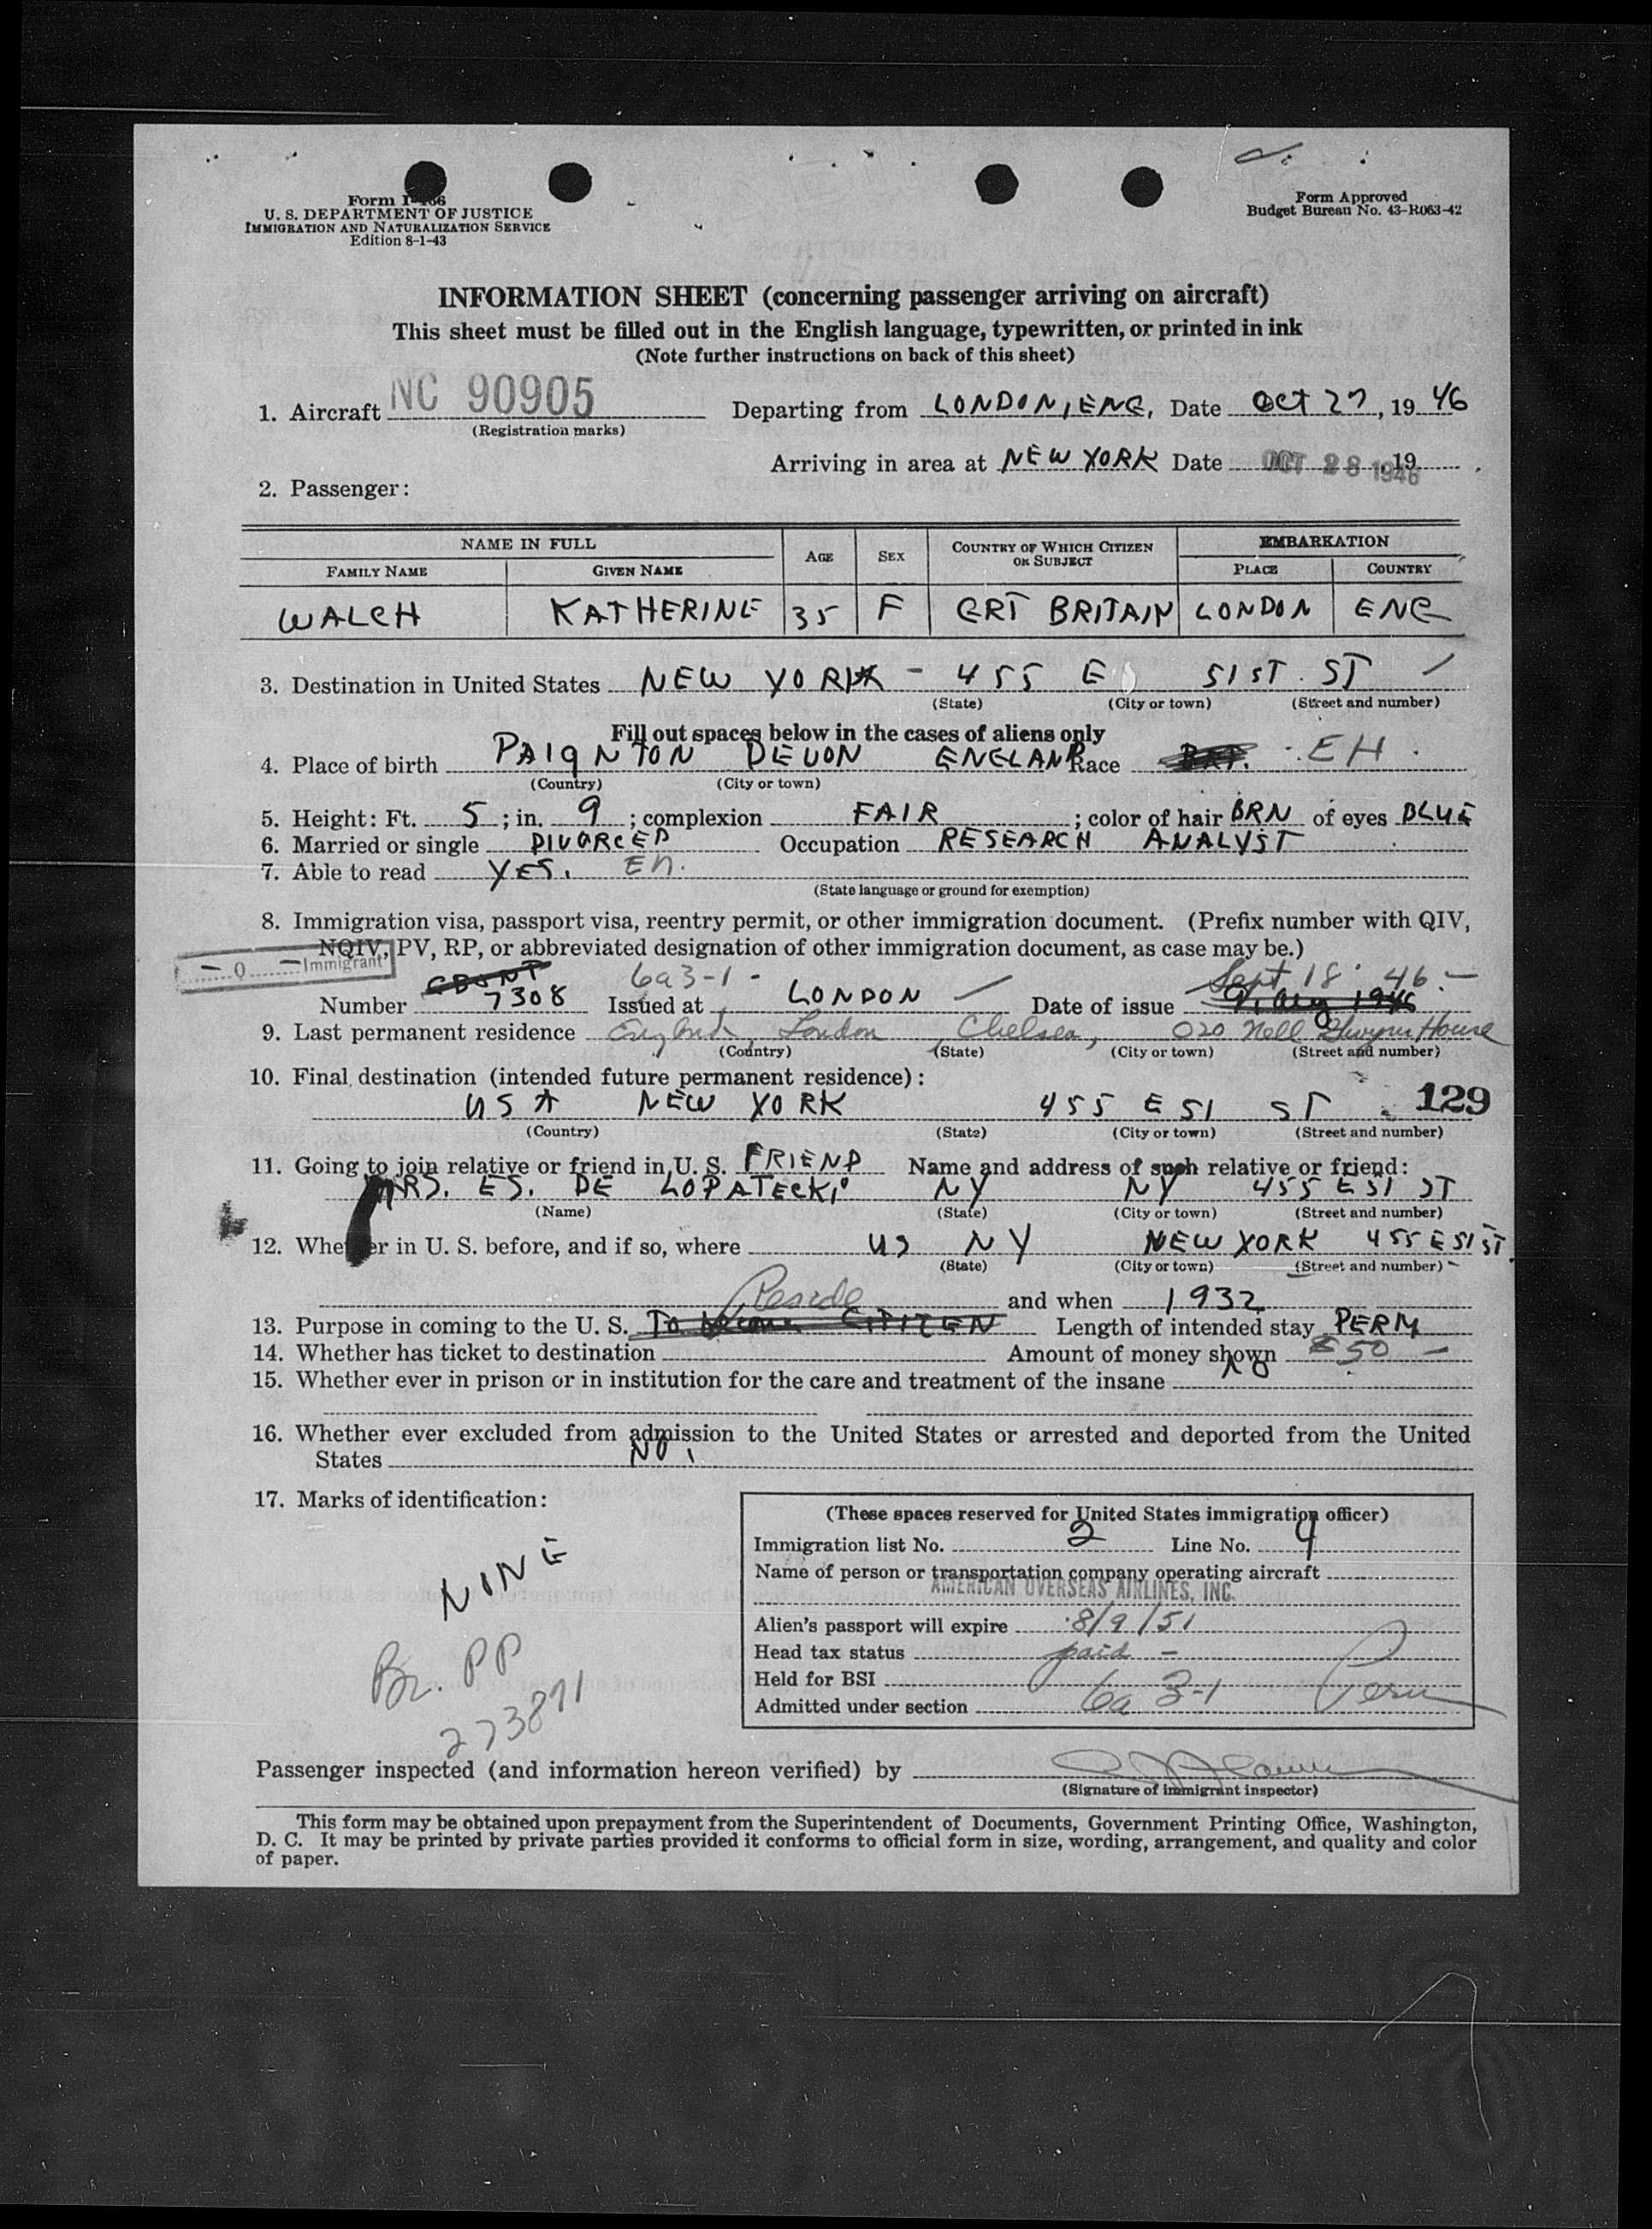 Form I-466
U. S. DEPARTMENT OF JUSTICE
IMMIGRATION AND NATURALIZATION SERVICE
Edition 8-1-43
Form Approved
Budget Bureau No. 43-R063-42
INFORMATION SHEET (concerning passenger arriving on aircraft)
This sheet must be filled out in the English language, typewritten, or printed in ink
(Note further instructions on back of this sheet)
1. Aircraft NC 90905 Departing from LONDON, ENG, Date OCT 27, 19 46
(Registration marks)
Arriving in area at NEW YORK Date OCT 28 1946, 19
2. Passenger:
NAME IN FULL AGE SEX COUNTRY OF WHICH CITIZEN OR SUBJECT EMBARKATION
FAMILY NAME GIVEN NAME PLACE COUNTRY
WALCH KATHERINE 35 F GRT BRITAIN LONDON ENG
3. Destination in United States NEW YORK - 455 E 51ST. ST
(State) (City or town) (Street and number)
Fill out spaces below in the cases of aliens only
4. Place of birth PAIGNTON DEVON ENGLAND Race BRT. EH.
(Country) (City or town)
5. Height: Ft. 5; in. 9; complexion FAIR; color of hair BRN of eyes BLUE
6. Married or single DIVORCED Occupation RESEARCH ANALYST
7. Able to read YES. En.
(State language or ground for exemption)
8. Immigration visa, passport visa, reentry permit, or other immigration document. (Prefix number with QIV,
NQIV, PV, RP, or abbreviated designation of other immigration document, as case may be.)
- Q - Immigrant
6a3-1 - Sept 18 46 -
Number 7308 Issued at LONDON Date of issue 9, Aug 1946
9. Last permanent residence England, London, Chelsea, 020 Nell Gwynn House
(Country) (State) (City or town) (Street and number)
10. Final destination (intended future permanent residence):
USA NEW YORK 455 E 51 ST. 129
(Country) (State) (City or town) (Street and number)
11. Going to join relative or friend in U. S. FRIEND Name and address of such relative or friend:
MRS. ES. DE LOPATECKI NY NY 455 E 51 ST
(Name) (State) (City or town) (Street and number)
12. Whether in U. S. before, and if so, where US NY NEW YORK 455 E 51 ST.
(State) (City or town) (Street and number)
Reside and when 1932
13. Purpose in coming to the U. S. To become CITIZEN Length of intended stay PERM
14. Whether has ticket to destination Amount of money shown £50 -
15. Whether ever in prison or in institution for the care and treatment of the insane NO
16. Whether ever excluded from admission to the United States or arrested and deported from the United
States NO.
17. Marks of identification:
NONE
Br. PP
273891
(These spaces reserved for United States immigration officer)
Immigration list No. 2 Line No. 4
Name of person or transportation company operating aircraft
AMERICAN OVERSEAS AIRLINES, INC.
Alien's passport will expire 8/9/51
Head tax status paid -
Held for BSI
Admitted under section 6a 3-1 Perm
Passenger inspected (and information hereon verified) by
(Signature of immigrant inspector)
This form may be obtained upon prepayment from the Superintendent of Documents, Government Printing Office, Washington,
D. C. It may be printed by private parties provided it conforms to official form in size, wording, arrangement, and quality and color
of paper.